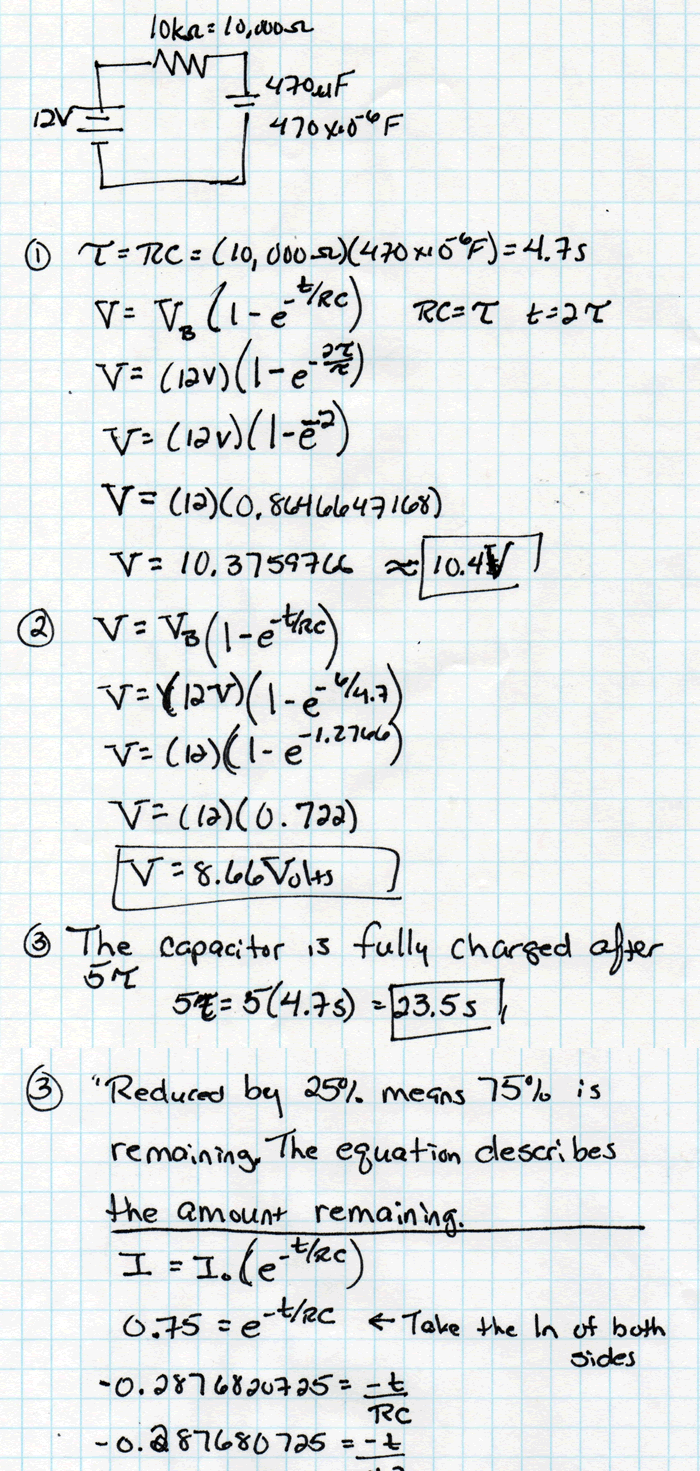 10kΩ = 10,000Ω
12V
470μF
470x10⁻⁶F
① τ = RC = (10,000Ω)(470x10⁻⁶F) = 4.7s
V = V_B (1 - e^-t/RC) RC = τ t = 2τ
V = (12V)(1 - e^-2τ/τ)
V = (12V)(1 - e^-2)
V = (12)(0.8646647168)
V = 10.3759766 ≈ 10.4V
② V = V_B (1 - e^-t/RC)
V = (12V)(1 - e^-6/4.7)
V = (12)(1 - e^-1.2766)
V = (12)(0.722)
V = 8.66Volts
③ The capacitor is fully charged after
5τ
5τ = 5(4.7s) = 23.5s
③ "Reduced by 25% means 75% is
remaining. The equation describes
the amount remaining.
I = I₀(e^-t/RC)
0.75 = e^-t/RC ← Take the ln of both
sides
-0.2876820725 = -t/RC
-0.287680725 = -t